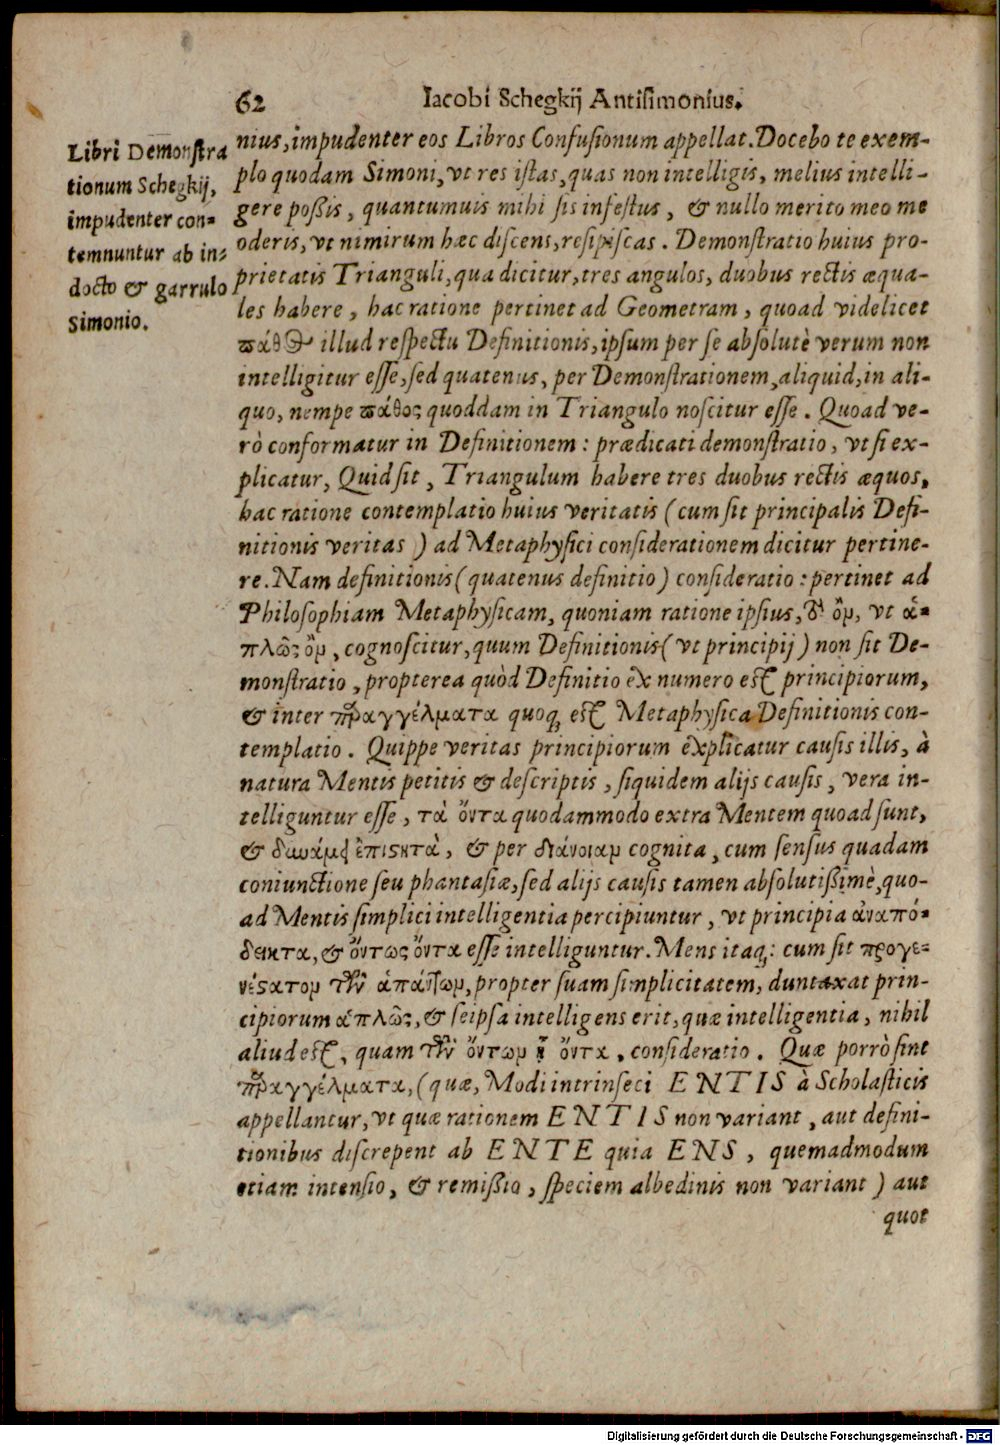 62 Iacobi Schegkij Antisimonius.
Libri Demonstra
tionum Schegkij,
impudenter con-
temnuntur ab in-
docto & garrulo
Simonio.
nius, impudenter eos Libros Confusionum appellat. Docebo te exem-
plo quodam Simoni, vt res istas, quas non intelligis, melius intelli-
gere poßis, quantumuis mihi sis infestus, & nullo merito meo me
oderis, vt nimirum hæc discens, resipiscas. Demonstratio huius pro-
prietatis Trianguli, qua dicitur, tres angulos, duobus rectis æqua-
les habere, hac ratione pertinet ad Geometram, quoad videlicet
πάθος illud respectu Definitionis, ipsum per se absolutè verum non
intelligitur esse, sed quatenus, per Demonstrationem, aliquid, in ali-
quo, nempe πάθος quoddam in Triangulo noscitur esse. Quoad ve-
rò conformatur in Definitionem: prædicati demonstratio, vt si ex-
plicatur, Quid sit, Triangulum habere tres duobus rectis æquos,
hac ratione contemplatio huius veritatis (cum sit principalis Defi-
nitionis veritas) ad Metaphysici considerationem dicitur pertine-
re. Nam definitionis (quatenus definitio) consideratio: pertinet ad
Philosophiam Metaphysicam, quoniam ratione ipsius, τȣ͂ ὂν, vt ἁ-
πλῶς ὂν, cognoscitur, quum Definitionis (vt principij) non sit De-
monstratio, propterea quòd Definitio ex numero est principiorum,
& inter παραγγέλματα quoq; est Metaphysica Definitionis con-
templatio. Quippe veritas principiorum explicatur causis illis, à
natura Mentis petitis & descriptis, siquidem alijs causis, vera in-
telliguntur esse, τὰ ὄντα quodammodo extra Mentem quoad sunt,
& δυνάμει ἐπιστητὰ, & per διάνοιαν cognita, cum sensus quadam
coniunctione seu phantasiæ, sed alijs causis tamen absolutißimè, quo-
ad Mentis simplici intelligentia percipiuntur, vt principia ἀναπό-
δεικτα, & ὄντως ὄντα esse intelliguntur. Mens itaq;: cum sit προγε-
νέστατον τῶν ἁπάντων, propter suam simplicitatem, duntaxat prin-
cipiorum ἁπλῶς, & seipsa intelligens erit, quæ intelligentia, nihil
aliud est, quam τῶν ὄντων ᾗ ὄντα, consideratio. Quæ porrò sint
παραγγέλματα, (quæ, Modi intrinseci ENTIS à Scholasticis
appellantur, vt quæ rationem ENTIS non variant, aut defini-
tionibus discrepent ab ENTE quia ENS, quemadmodum
etiam intensio, & remißio, speciem albedinis non variant) aut
quot
Digitalisierung gefördert durch die Deutsche Forschungsgemeinschaft - DFG